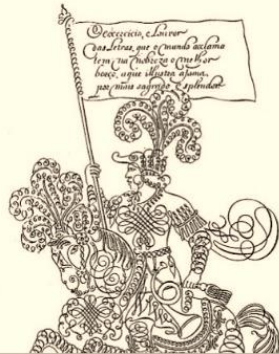 O exercicio, e louvor
das Letras, que o mundo acclama
tem na nobreza o melhor
boeço, a que illustra a fama,
por mais sagrado esplendor